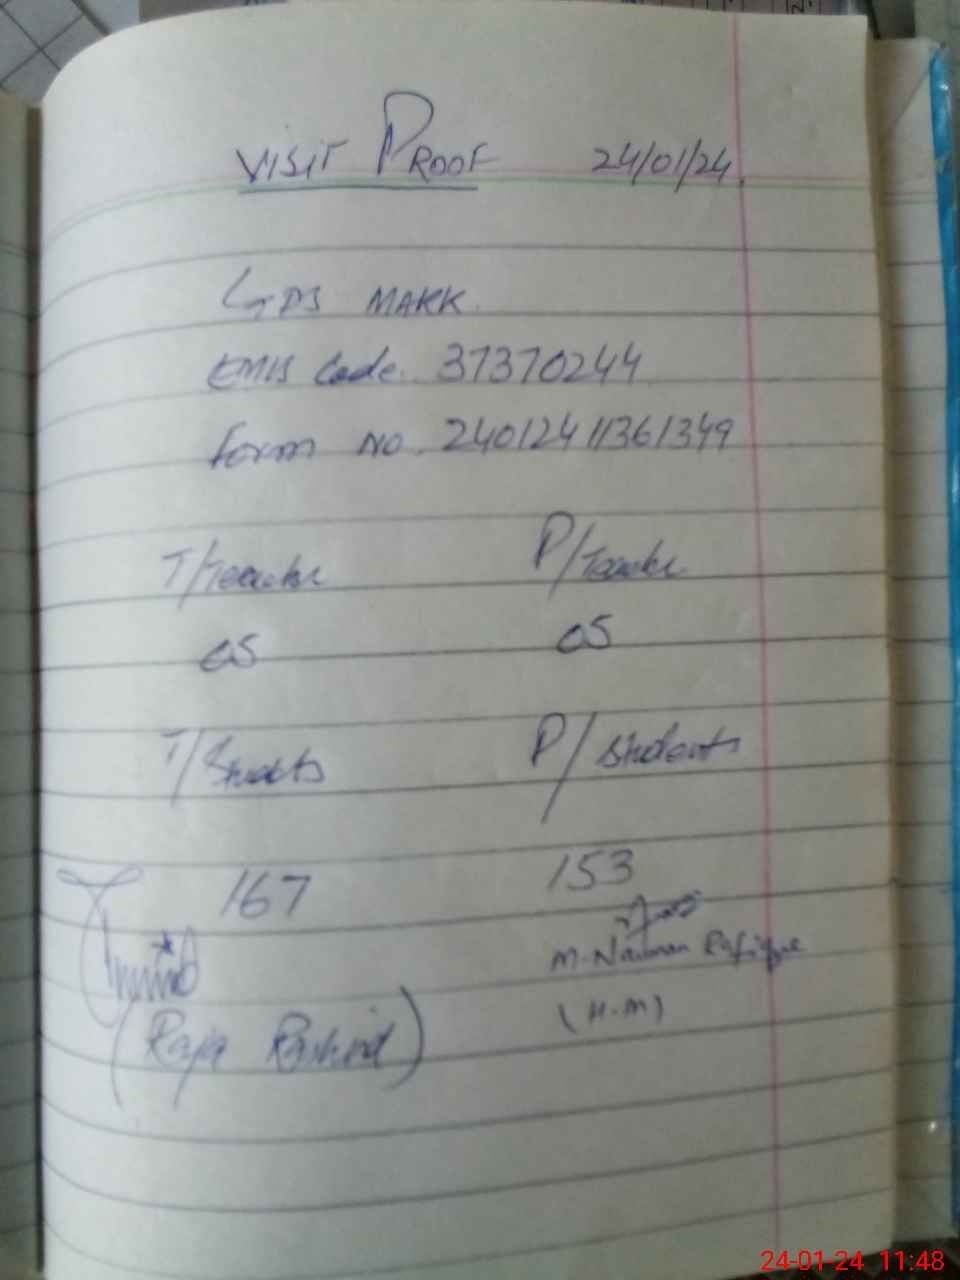 VISIT PROOF 24/01/24
GPS MAKK.
EMIS Code. 37370244
Form no. 24012411361349
T/Teacher P/Teacher
05 05
T/Students P/Students
167 153
M. Nauman Rafique
(H.M)
(Raja Rashid)
24-01-24 11:48